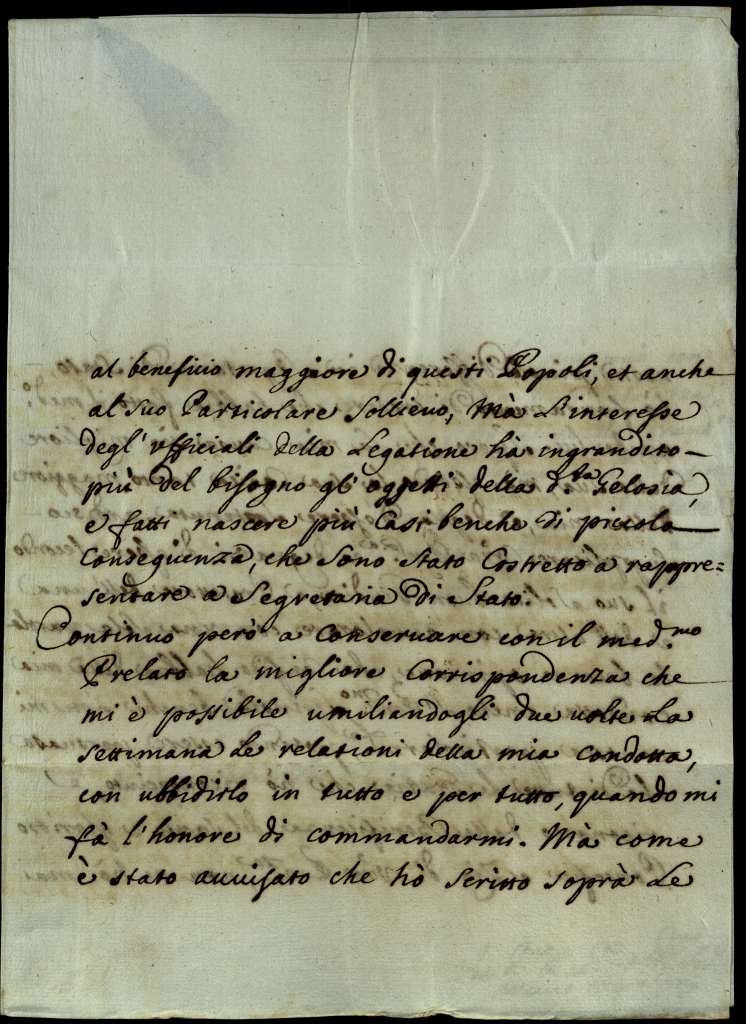 al beneficio maggiore di questi Popoli, et anche
al suo Particolare sollieuo, Mà L'interesse
degl' vfficiali della Legatione hà ingrandito
più del bisogno gl' oggetti della d.ta Gelosia,
e fatti nascere più Casi benche di piccola
Condegüenza, che sono stato Costretto a rappre=
sentare a Segretaria di Stato.
Continuo però a conseruare con il med.mo
Prelato la migliore Corrispondenza che
mi è possibile umiliandogli due uolte La
settimana Le relationi della mia condotta,
con ubbidirlo in tutto e per tutto, quando mi
fà l'honore di commandarmi. Mà come
è stato auuisato che hò scritto soprà Le